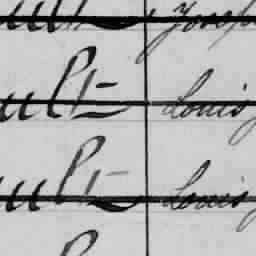 ult Josep
ult Louis
ult Louis